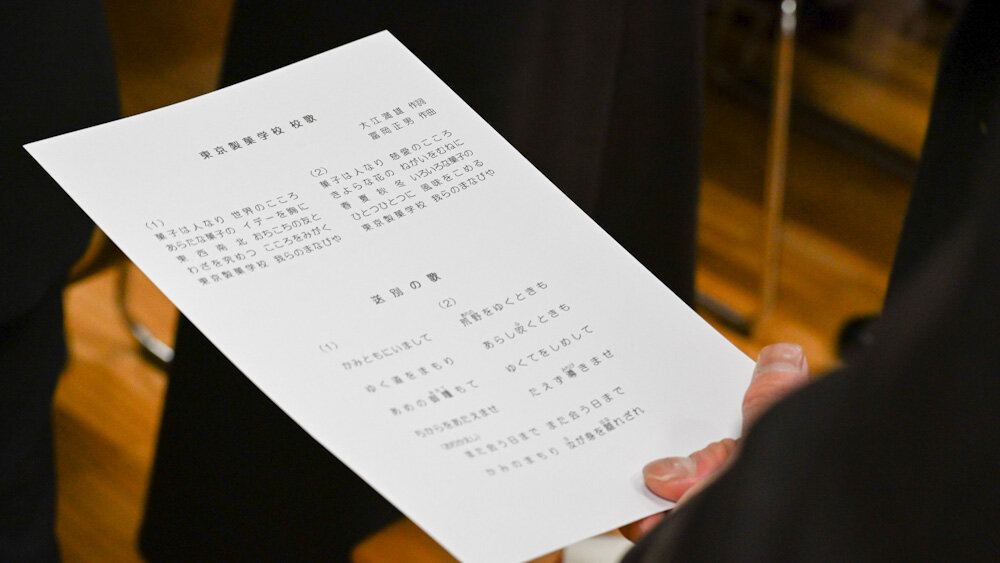 東京製菓学校 校歌
大江満雄 作詞
富岡正男 作曲
(1)
菓子は人なり 世界のこころ
あらたな菓子の イデーを胸に
東 西 南 北 おちこちの友と
わざを究めつ こころをみがく
東京製菓学校 我らのまなびや
(2)
菓子は人なり 慈愛のこころ
きよらな花の ねがいをむねに
春 夏 秋 冬 いろいろな菓子の
ひとつひとつに 風味をこめる
東京製菓学校 我らのまなびや
送 別 の 歌
(1)
かみともにいまして
ゆく道をまもり
あめの御糧もて
ちからをあたえませ
(おりかえし)
また会う日まで また会う日まで
かみのまもり 汝が身を離れざれ
(2)
荒野をゆくときも
あらし吹くときも
ゆくてをしめして
たえず導きませ